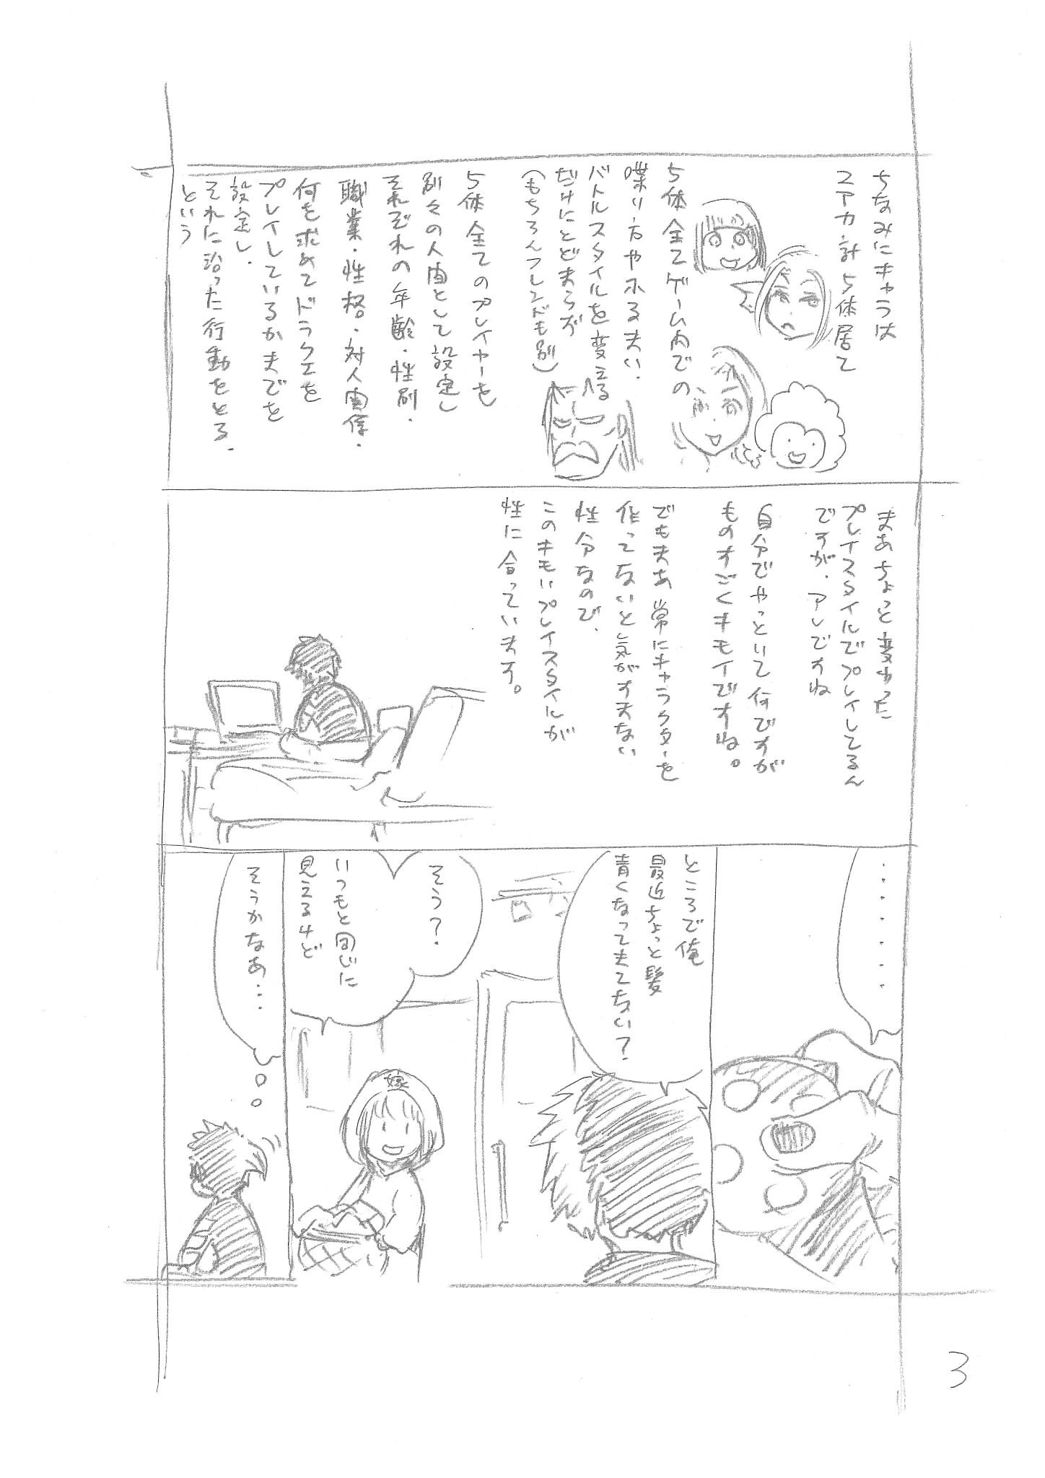 ちなみにキャラは
2アカ・計5体居て
5体全てゲーム内での
喋り方やふるまい・
バトルスタイルを変える
だけにとどまらず
(もちろんフレンドも別)
5体全てのプレイヤーを
別々の人間として設定し
それぞれの年齢・性別・
職業・性格・対人関係・
何を求めてドラクエを
プレイしているかまでを
設定し、
それに沿った行動をとる、
という
まあちょっと変わった
プレイスタイルでプレイしてるん
ですが、アレですね
自分でやっといて何ですが
ものすごくキモイですね。
でもまあ常にキャラクターを
作ってないと気がすまない
性分なので、
このキモいプレイスタイルが
性に合っています。
・・・・・・・
ところで俺
最近ちょっと髪
青くなってきてない?
そう?
いつもと同じに
見えるけど
嫁
そうかなあ・・・
3